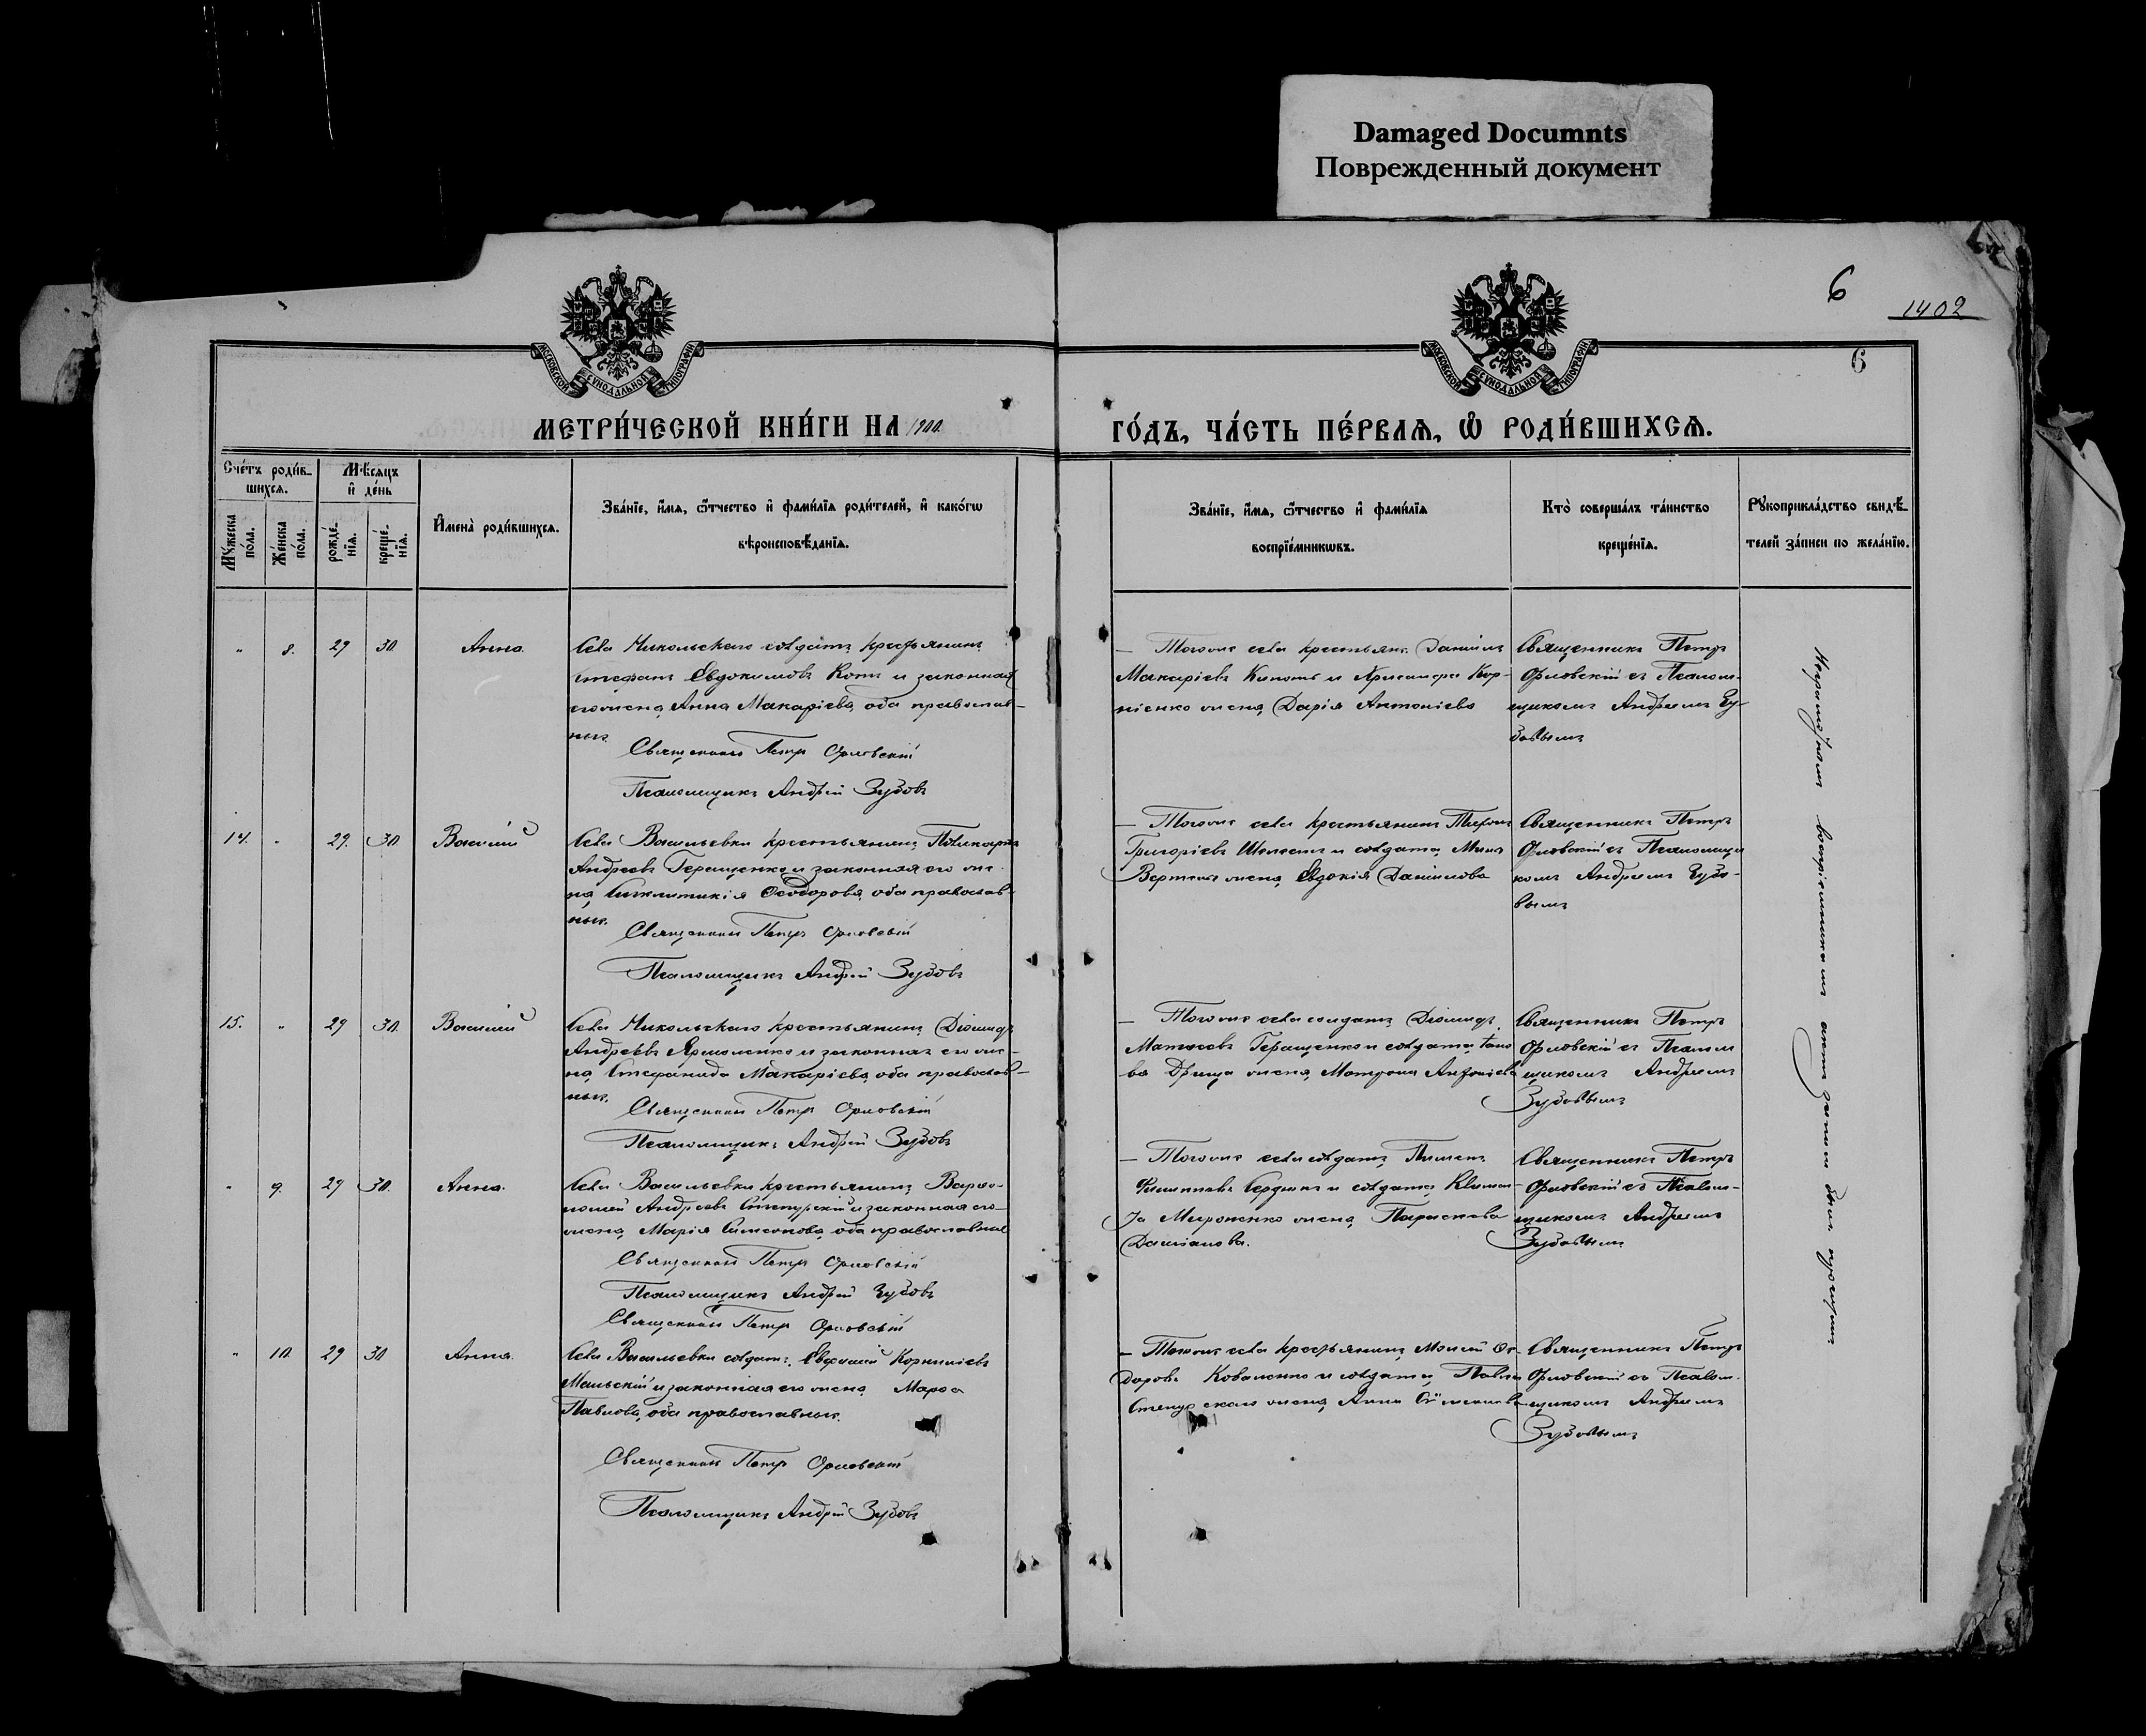 Damaged Documnts
Поврежденный документ
6
1402
6
МОСКОВСКОЙ СѴНОДАЛЬНОЙ ТИПОГРАФІИ
МОСКОВСКОЙ СѴНОДАЛЬНОЙ ТИПОГРАФІИ
МЕТРИ́ЧЕСКОЙ КНИ́ГИ НА 1900
ГО́ДЪ, ЧА́СТЬ ПЕ́РВАЯ, Ѡ РОДИ́ВШИХСЯ.
Сче́тъ роди́в-
шихся.
Мѣ́сяцъ
и де́нь
Му́жеска по́ла.
Же́нска по́ла.
рожде́-нія.
креще́-нія.
Имена̀ роди́вшихся.
Зва́ніе, и́мя, о́тчество и фами́лія роди́телей, и како́гѡ
вѣроисповѣ́данія.
Зва́ніе, и́мя, о́тчество и фами́лія
воспріе́мниковъ.
Кто̀ соверша́лъ та́инство
креще́нія.
Рукоприкла́дство свидѣ́-
телей за́писи по жела́нію.
" 8. 29 30. Анна.
Села Никольскаго солдатъ крестьянинъ
Стефанъ Евдокимовъ Котъ и законная
его жена, Анна Макаріева, оба православ-
ныя.
Священникъ Петръ Орловскій
Псаломщикъ Андрей Зубовъ
— Тогоже села крестьян. Даніилъ
Макаріевъ и Хрисанфа Кор-
ніенко жена, Дарія Антоніева
Священникъ Петръ
Орловскій съ Псалом-
щикомъ Андреемъ Зу-
бовымъ
14. " 29. 30 Василій
Села Васильевки крестьянинъ Поликарпъ
Андреевъ Геращенко и законная его же-
на, Синклитикія Ѳеодорова, оба православ-
ныя.
Священникъ Петръ Орловскій
Псаломщикъ Андрей Зубовъ
— Тогоже села крестьянинъ
Григоріевъ и солдата
жена, Евдокія Даніилова
Священникъ Петръ
Орловскій съ Псаломщи
комъ Андреемъ Зубо-
вымъ
15. " 29 30. Василій
Села Никольскаго крестьянинъ Діомидъ
Андреевъ Ярмоленко и законная его же-
на, Стефанида Макаріева, оба православ-
ныя.
Священникъ Петръ Орловскій
Псаломщикъ Андрей Зубовъ
— Тогоже села солдатъ Діомидъ
Матѳеевъ Геращенко и солдата, Іако
ва жена, Матрона Антоніева
Священникъ Петръ
Орловскій съ Псалом
щикомъ Андреемъ
Зубовымъ
" 9. 29 30. Анна.
Села Васильевки крестьянинъ Варѳо-
ломей Андреевъ и законная его
жена, Марія Симеонова, оба православные
Священникъ Петръ Орловскій
Псаломщикъ Андрей Зубовъ
Священникъ Петръ Орловскій
— Тогоже села солдатъ, Пименъ
Филипповъ Сердюкъ и солдата, Климен-
та Мироненко жена, Параскева
Даміанова.
Священникъ Петръ
Орловскій съ Псалом-
щикомъ Андреемъ
Зубовымъ
" 10. 29 30 Анна.
Села Васильевки солдатъ, Евѳимій Корниліевъ
Мальскій и законная его жена, Марѳа
Павлова, оба православныя.
Священникъ Петръ Орловскій
Псаломщикъ Андрей Зубовъ
— Тогоже села крестьянинъ, Моисей Ѳе-
доровъ Коваленко и солдата, Павла
жена, Анна
Священникъ Петръ
Орловскій съ Псалом-
щикомъ Андреемъ
Зубовымъ
Неграмотнымъ воспріемникамъ